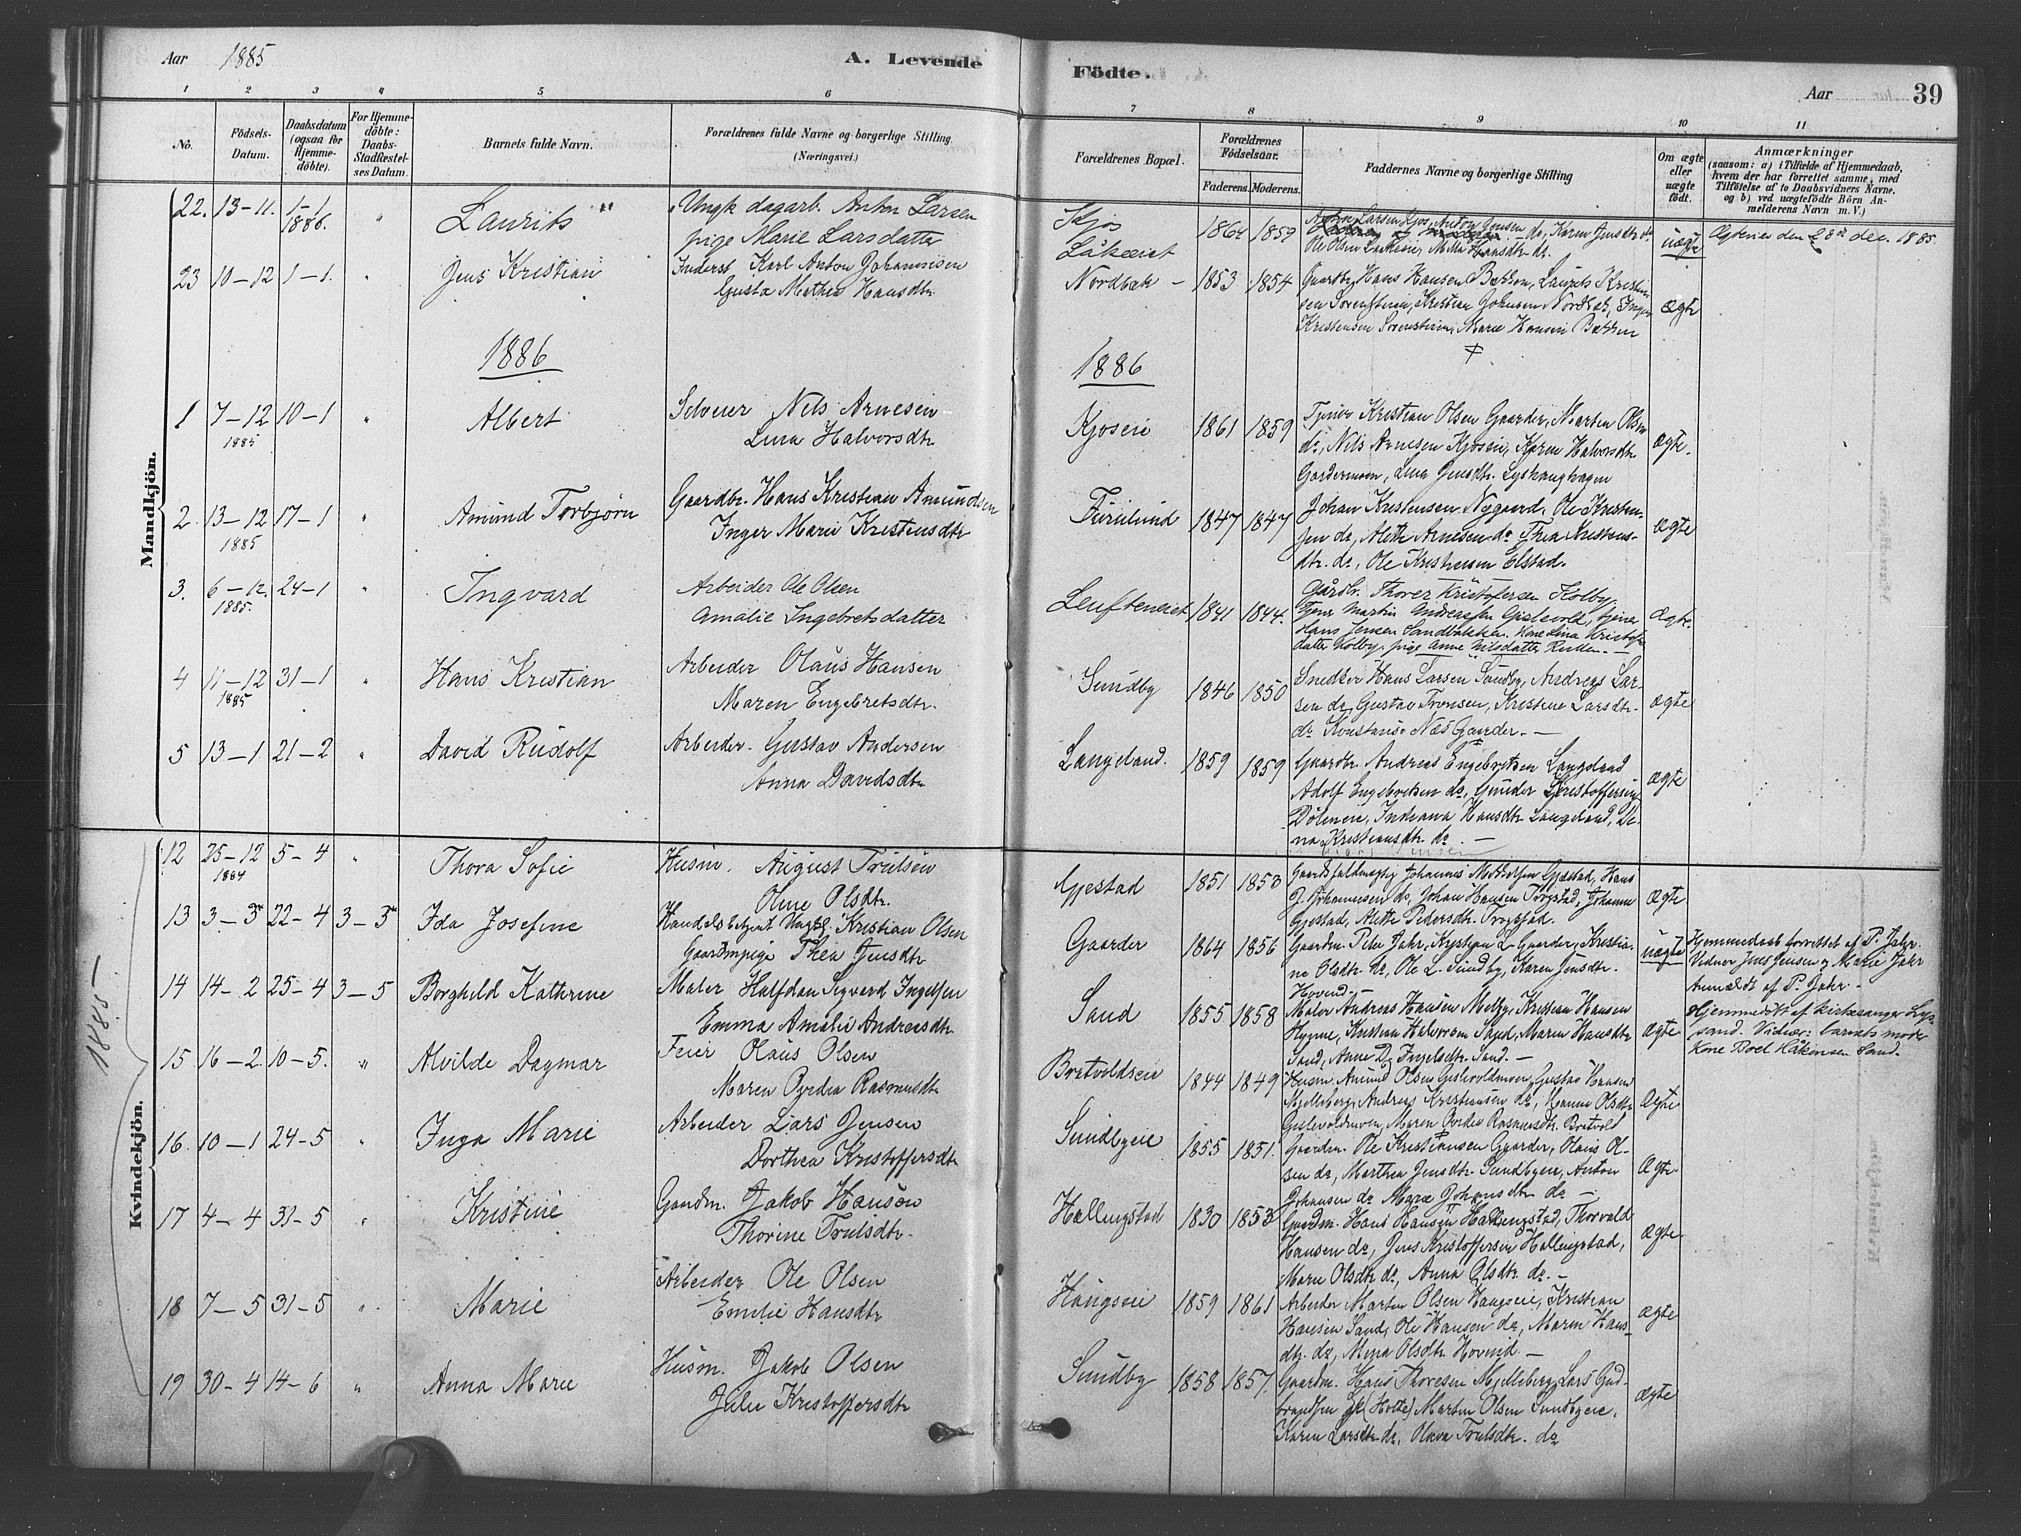 Aar 1885
A. Levende
Födte.
Aar
39
1 2 3 4 5 6 7 8 9 10 11
No.
Födsels-
Datum.
Daabsdatum
(ogsaa for
Hjemme-
döbte).
For Hjemme-
döbte:
Daabs-
Stadfæstel-
ses Datum.
Barnets fulde Navn.
Forældrenes fulde Navne og borgerlige Stilling
(Næringsvei.)
Forældrenes Bopæl.
Forældrenes
Födselsaar.
Faderens. Moderens.
Faddernes Navne og borgerlige Stilling
Om ægte
eller
uægte
födt.
Anmærkninger
(saasom: a) i Tilfælde af Hjemmedaab,
hvem der har forrettet samme, med
Tilföielse af to Daabsvidners Navne.
og b) ved uægtefödte Börn An-
melderens Navn m. V.)
Mandkjön.
22. 13-11. 1-1 1886. " Laurits
Ungk dagarb. Anton Larsen
pige Marie Larsdatter
Kjos
1864 1859
Ole Olsen
uægte
Ægteviet den 28de dec. 1885
23 10-12 1-1. " Jens Kristian
Inderst Karl Anton Johannesen
Gusta Mathea Hansdtr
Nordbak - 1853 1854
Gaardbr Hans Hansen Bakken, Laurits Kristen-
sen Sorenstuen, Kristian Johnsen Nordbak, Inger
Kristensen Sorenstuen, Marie Hansen Bakken
ægte
1886
1886
1 7-12 1885 10-1 " Albert
Selveier Nils Arnesen
Lina Halvorsdtr
Kjoseie 1861 1859
Kristian Olsen Gaarder, Morten Olsen
do, Nils Arnesen Kjoseie, Karen Halvorsdtr
Gardermoen, Lina Jensdtr. Lyshaughagen
ægte.
2. 13-12 1885 17-1 " Amund Torbjörn
Gaardbr. Hans Kristian Amundsen
Inger Marie Kristensdtr
Furulund 1847 1847
Johan Kristensen Nygaard, Ole Kristen-
sen do, Alette Arnesen do Thea Kristens-
dtr. do, Ole Kristensen Elstad.
ægte
3. 6-12. 1885. 24-1 " Ingvard
Arbeider Ole Olsen
Amalie Ingebretsdatter
1841 1844.
Gårdbr. Thorer Kristofersen Kolby,
Tjener Martin Andreassen Gislevold, tjener
Hans Jensen Sandbakken. Kone Lina Kristofers-
datter Kolby, pige Anne Nilsdatter
Ægte.
4 11-12 1885 31-1 " Hans Kristian
Arbeider Olaus Hansen
Maren Engebretsdtr.
Sundby 1846 1850
Snedker Hans Larsen Sundby, Andreas Lar-
sen do, Gustav Tronsen, Kristine Larsdtr.
do, Konstanse Næs Gaarder. -
ægte
5 13-1 21-2 " David Rudolf
Arbeider. Gustav Andersen
Anna Davidsdtr
Langeland. 1859 1859
Gaardbr. Andreas Engebretsen Langeland
Adolf Engebretsen do, Gunder Kristoffersen
Dölineie, Indiana Hansdtr Langeland, Di-
na Kristiansdtr do. -
ægte
1885-
Kvindekjön.
12 25-12 1884 5-4 " Thora Sofie
Husm. August Trulsen
Oline Olsdtr.
Gjestad 1851 1853
Johannes Gjestad, Hans
J. Johannesen do, Johan Hansen Trogstad, Johanne
Gjestad, Alette Pedersdtr. Trogstad.
ægte
13 3-3 22-4 3-3 Ida Josefine
Handelsbetjent Ungkl. Kristian Olsen
Gaardmpige Thea Jensdtr
Gaarder 1864 1856
Gaardm. Peder Jahr, Kristian L. Gaarder, Kristia-
ne Olsdtr. do, Ole L. Sundby, Karen Jensdtr.
Hovind. -
uægte
Hjemmedaab forrettet af P. Jahr.
Vidner Jens Jensen og Marie Jahr
Anmeldt af P. Jahr. -
14 14-2 25-4 3-5 Borghild Kathrine
Maler Halfdan Sigvard Ingelsen
Emma Amalie Andreasdtr
Sand 1855 1858
Maler Andreas Hansen Melby, Kristian Hansen
Hygne, Kristian Halvorsen Sand, Maren Hansdtr
Sand, Anne D. Ingelsdtr. Sand. -
ægte
Hjemmedöbt af Kirkesanger
sand. Vidner: barnets moder
Kone Boel Håkensen Sand.
15 16-2. 10-5. " Alvilde Dagmar
Feier Olaus Olsen
Maren Perdea Rasmusdtr
Bretvoldseie 1844 1849
Husm. Amund Olsen Gislevoldmoen, Gustav Hansen
Mjelleberg, Andreas Kristiansen do, Hanna Olsdtr
Gislevoldmoen, Maren Perdea Rasmusdtr. Bretvold
Ægte
16. 10-1 24-5 " Inga Marie
Arbeider Lars Jensen
Dorthea Kristoffersdtr
Sundbyeie 1855 1851.
Gaardm. Ole Kristiansen Gaarder, Olaus Ol-
sen do, Marthea Jensdtr. Sundbyeie, Anton
Johansen do Marie Johansdtr do -
Ægte
17 4-4 31-5 " Kristine
Gaardm. Jakob Hansen
Thorine Trulsdtr.
Hallingstad 1830 1853
Gaardm. Hans Hansen Hallingstad, Thorvald
Hansen do, Jens Kristoffersen Hallingstad,
Marie Olsdtr do, Anna Olsdtr do. -
Ægte
18 7-5 31-5 " Marie
Arbeider Ole Olsen
Emilie Hansdtr
Haugseie 1859 1861
Arbeider Morten Olsen Haugseie, Kristian
Hansen Sand, Ole Hansen do, Maren Hans-
dtr. do, Mina Olsdtr. Hovind -
ægte
19 30-4 14-6 " Anna Marie
Husm. Jakob Olsen
Julie Kristoffersdtr
Sundby 1858 1857.
Gaardm. Hans Thoresen Mjelleberg, Lars Gud-
brandsen gk (Holte) Martin Olsen Sundbyeie,
Karen Larsdtr do, Olava Trulsdtr. do
ægte